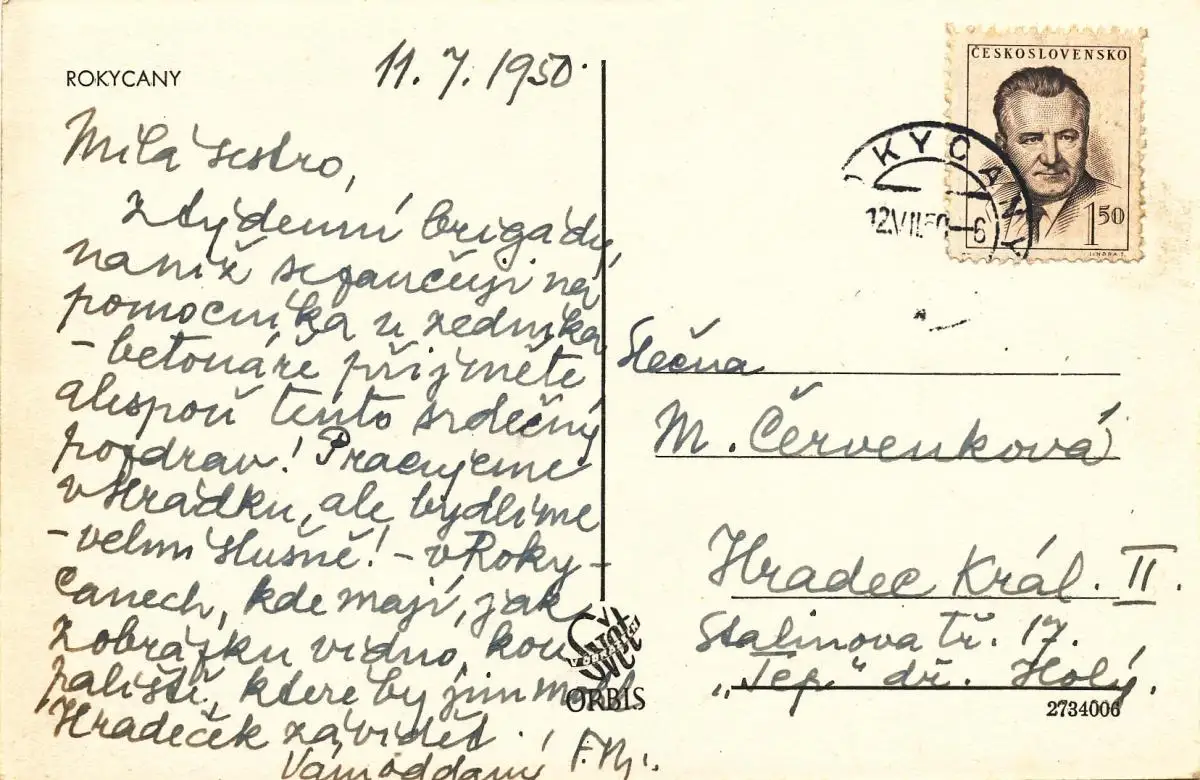 ROKYCANY
11. 7. 1950
Milá sestro,
Z týdenní brigády,
na niž se zaučuji na
pomocníka u zedníka
- betonáře přijměte
alespoň tento srdečný
pozdrav! Pracujeme
v Hrádku, ale bydlíme
- velmi slušně! - v Roky-
canech, kde mají, jak
z obrázku vidno, kou-
paliště, které by jim mohl
Hradeček závidět.
Vám oddaný
ČESKOSLOVENSKO
1 50
JINDRA
OKYCANY
12.VII.50-6
Slečna
M. Červenková
Hradec Král. II.
Stalinova tř. 17.
„Tep“ dř. Holý.
ORBIS
2734006